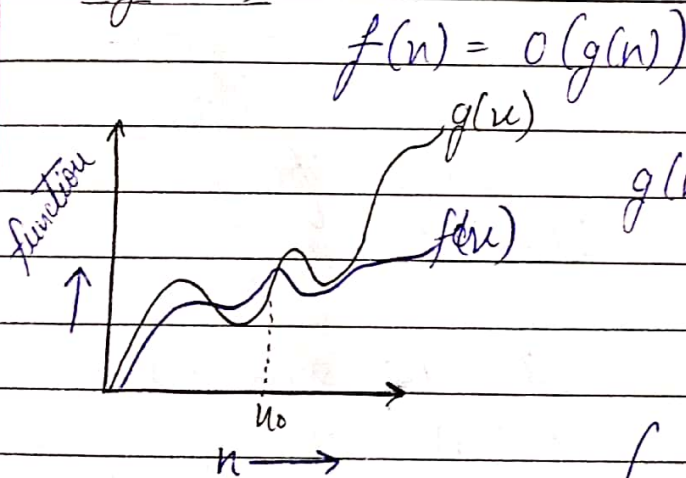 f(n) = O(g(n))
g(n)
g(
function
f(n)
n0
n